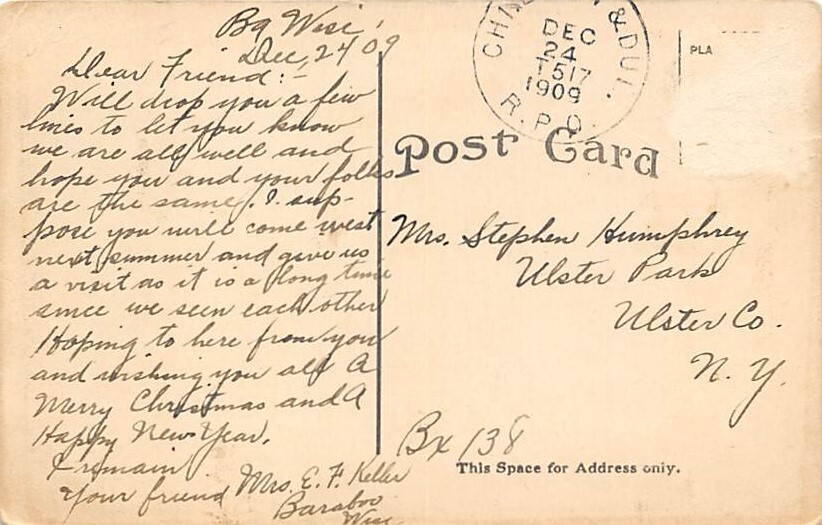 Bg Wisc,
Dec, 24 09
Dear Friend:-
Will drop you a few
lines to let you know
we are all well and
hope you and your folks
are the same. I sup-
pose you will come west
next summer and give us
a visit as it is a long time
since we seen each other
Hoping to here from you
and wishing you all A
Merry Christmas and A
Happy New Year.
I remain
Your friend Mrs. E. F. Keller
Baraboo
Wisc.
& DUL.
DEC
24
T517
1909
R.P.O.
PLA
Post Card
Mrs. Stephen Humphrey
Ulster Park
Ulster Co.
N. Y.
Bx 138
This Space for Address only.